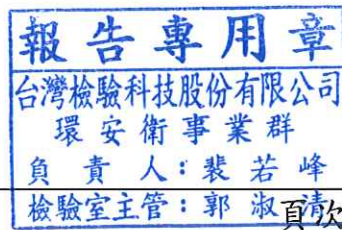 報告專用章
台灣檢驗科技股份有限公司
環安衛事業群
負責人：裴若峰
檢驗室主管：郭淑清
頁次